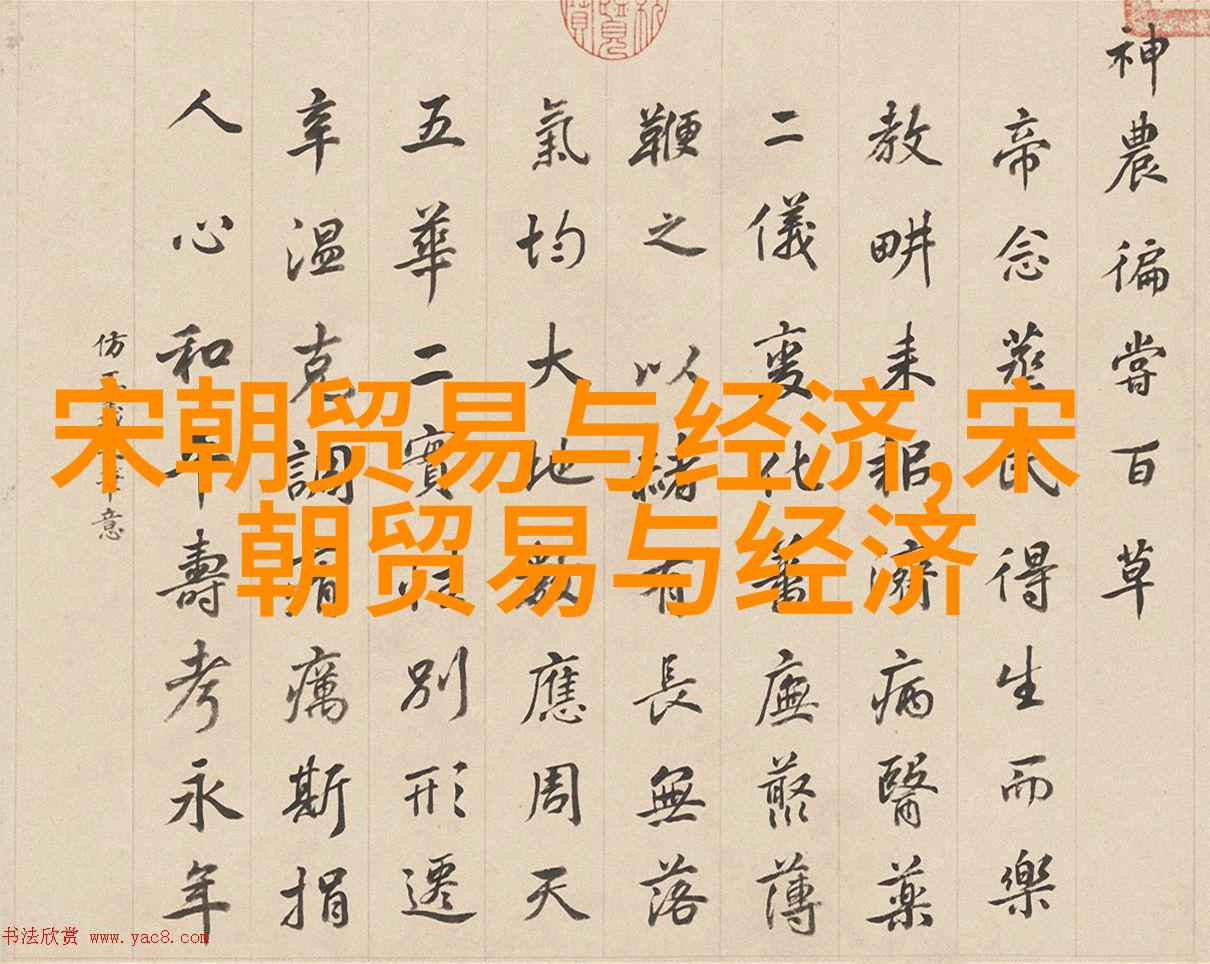 宋朝贸易与经济,宋
朝贸易与经济
神農徧嘗百草
帝念蒸民得生而樂
教畊耒耜濟病醫藥
二儀變化蕃廡藂薄
鞭之以赭有長無落
氣均大地數應周天
五華二實性別形遷
辛温克調有癘斯捐
人心和平壽考永年
仿 意
书法欣赏 www.yac8.com